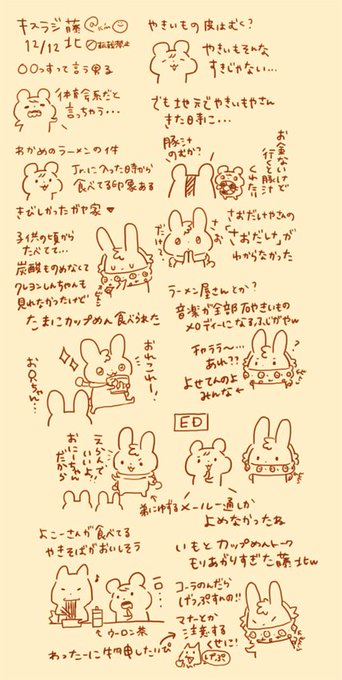 キスラジ 藤
12/12 北 転載禁止
○○っすって言う男る
体育会系だと
言っちゃう…
わかめのラーメンの件
Jr.に入った日から
食べてる印象ある
きびしかったガヤ家♥
子供の頃から
たべてて…
炭酸ものめなくて
クレヨンしんちゃんも
見れなかったけど
たまにカップめん食べられた
おれこれー!
お兄ちゃん…
えらんで
いいよ!!
おにーちゃん
だから
弟にゆずる
よこーさんが食べてる
やきそばがおいしそう
ウーロン茶
わったーに物申したいぴ
やきいもの皮はむく?
やきいもそんな
すきじゃない…
でも地元でやきいもやさん
きた日に…
豚汁
のむか?
お金ないけど
行くと豚汁
くれた!!
さおだけやさんの
「さおだけ」が
わからなかった
だけ?
ラーメン屋さんとか?
音楽が全部石やきいもの
メロディーになるふじがやw
チャララ〜…
あれ??
よせてんのよ
みんな
ED
メール一通しか
よめなかったね
いもとカップめんトーク
もりあがりすぎた藤北w
コーラのんだら
げっぷすんの!!
マナーとか
注意する
くせに!
げっぷ